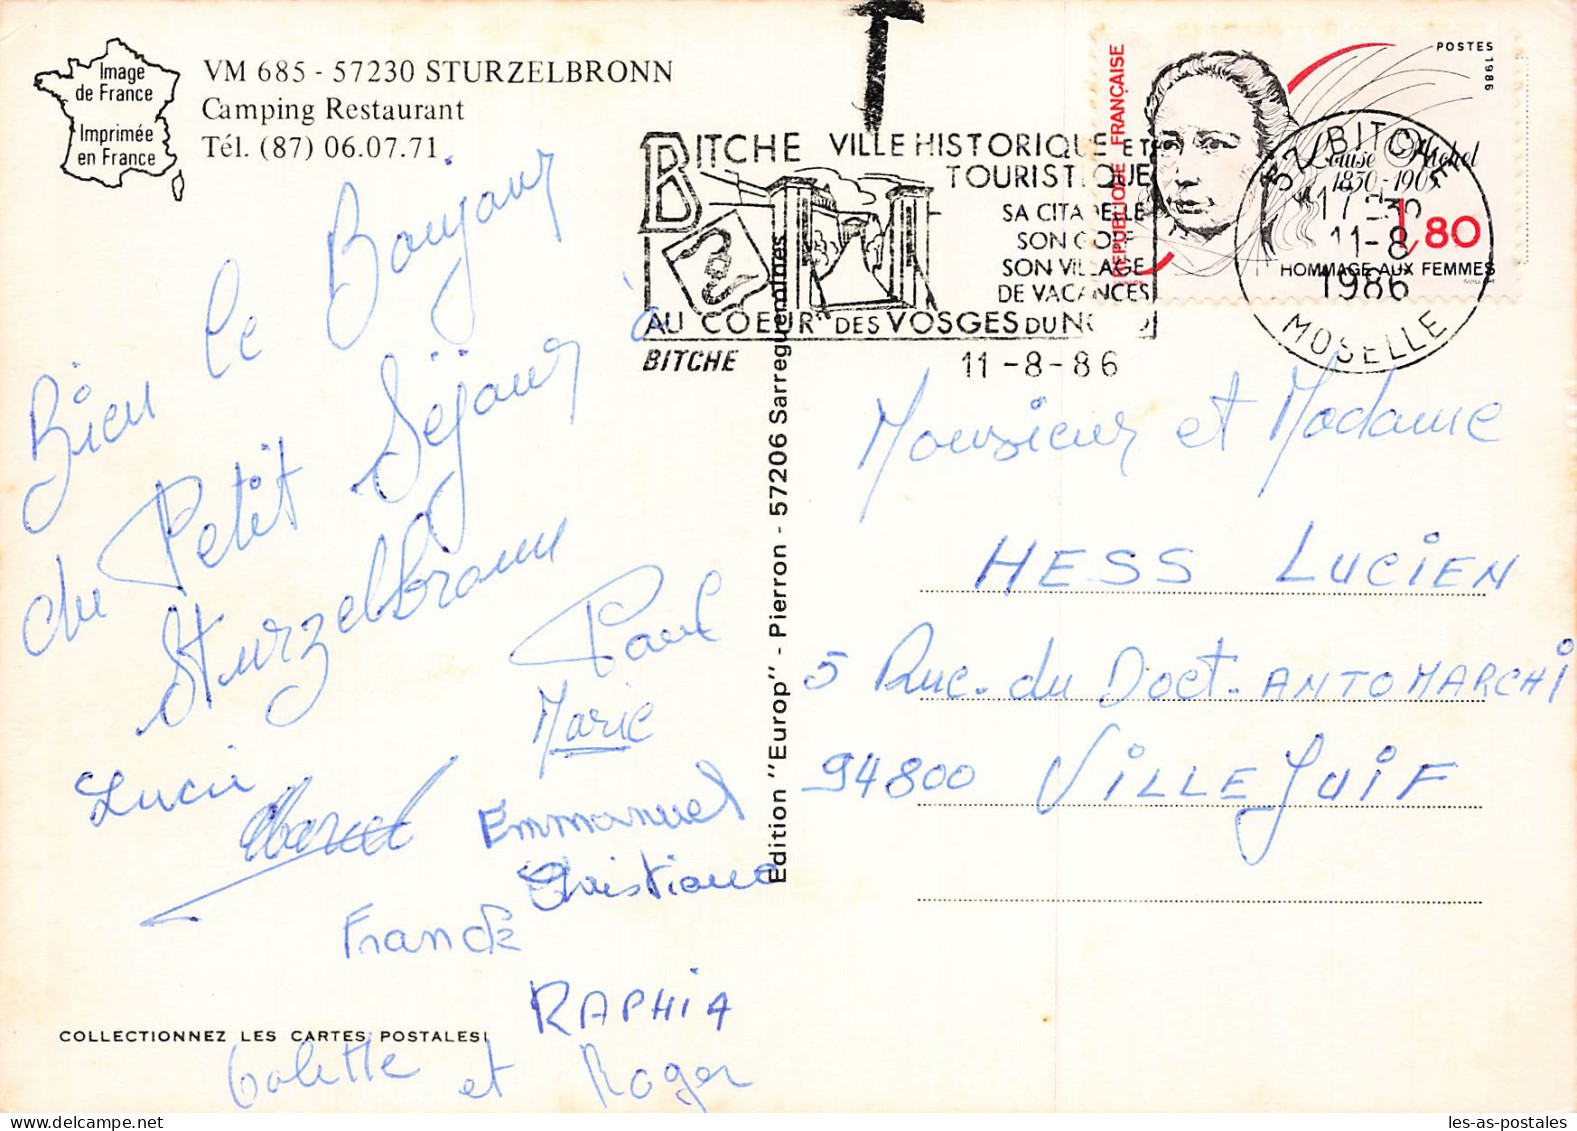 Image
de France
Imprimée
en France
VM 685 - 57230 STURZELBRONN
Camping Restaurant
Tél. (87) 06.07.71
T
BITCHE VILLE HISTORIQUE ET
TOURISTIQUE
SA CITADELLE
SON GOLF
SON VILLAGE
DE VACANCES
AU COEUR DES VOSGES DU NORD
BITCHE
11-8-86
RÉPUBLIQUE FRANÇAISE
POSTES 1986
Louise Michel
1830-1905
1,80
HOMMAGE AUX FEMMES
57 BITCHE
17 H 30
11-8
1986
MOSELLE
Bien le Bonjour
du Petit Séjour à
Sturzelbronn
Paul
Marie
Lucie
Emmanuel
Christiane
Franck
RAPHIA
Colette et Roger
COLLECTIONNEZ LES CARTES POSTALES!
Edition "Europ" - Pierron - 57206 Sarreguemines
Monsieur et Madame
HESS LUCIEN
5 Rue du Doct. ANTOMARCHI
94800 VILLEJUIF
les-as-postales - delcampe.net